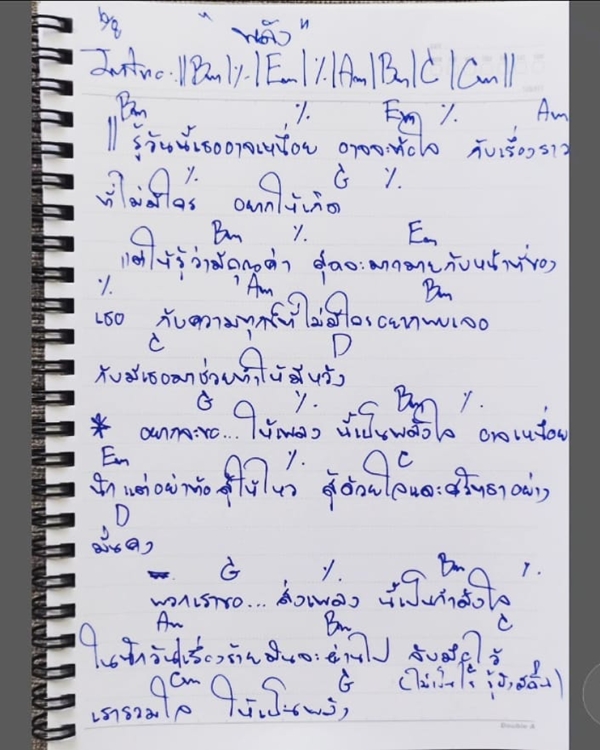 6/8 "พลัง"
Intro: || Bm | ٪. | Em | ٪. | Am | Bm | C | Cm ||
Bm ٪. Em ٪. Am
|| รู้วันนี้เธออาจเหนื่อย อาจจะท้อใจ กับเรื่องราว
٪. G ٪.
ที่ไม่มีใคร อยากให้เกิด
Bm ٪. Em
แต่ให้รู้ว่ามีคุณค่า สุดจะมากมายกับหน้าที่ของ
٪. Am Bm
เธอ กับความทุกข์ที่ไม่มีใครอยากพบเจอ
C D
กับมีเธอมาช่วยทำให้มีหวัง
G ٪. Bm ٪.
* อยากจะขอ... ให้เพลง นี้เป็นพลังใจ อาจเหนื่อย
Em ٪. C
นัก แต่อย่าท้อ สู้ให้ไหว สู้ด้วยใจและศรัทธาอย่าง
D
มั่นคง
G ٪. Bm ٪.
พวกเราขอ... ส่งเพลง นี้เป็นกำลังใจ
Am Bm C
ในทุกวันเรื่องร้ายมันจะผ่านไป จับมือไว้
Cm G
เรารวมใจ ให้เป็นพลัง